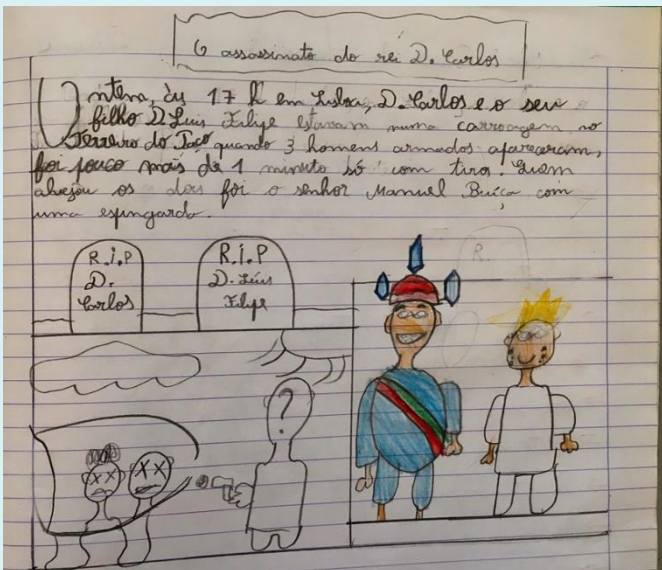 O assassinato do rei D. Carlos
Ontem, às 17 h em Lisboa, D. Carlos e o seu
filho D. Luis Filipe estavam numa carroagem no
Terreiro do Paço quando 3 homens armados apareceram,
foi pouco mais de 1 minuto só com tiro. Quem
alvejou os dois foi o senhor Manuel Buíça com
uma espingarda.
R.I.P
D.
Carlos
R.I.P
D. Luís
Filipe
R.
?
XX
XX